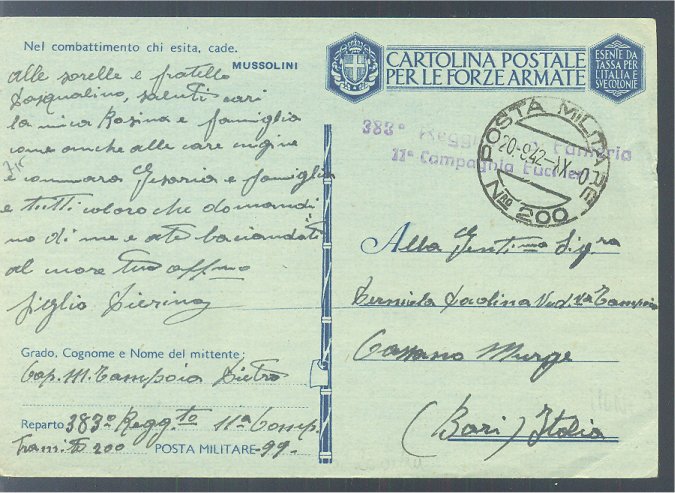 Nel combattimento chi esita, cade.
MUSSOLINI
alle sorelle e fratello
Pasqualino, saluti cari
la mia Rosina e famiglia
come anche alle care cugine
e commara e famiglia
e tutti coloro che domandi
no di me e a te baciandoti
al more tuo affmo
figlio Pierino
Grado, Cognome e Nome del mittente:
Cap. M. Campoia Pietro
Reparto 383º Regg.to 11ª Comp.
Tramite 200 POSTA MILITARE 99.
CARTOLINA POSTALE
PER LE FORZE ARMATE
ESENTE DA
TASSA PER
L'ITALIA E
SVE COLONIE
383º Reggi Fanteria
11ª Compagnia Fucilieri
POSTA MILITARE
20-9.42-XX-0
Nº 200
Alla Gent.ma Sig.ra
Paolina Ved. Campoia
Cassano Murge
(Bari) Italia